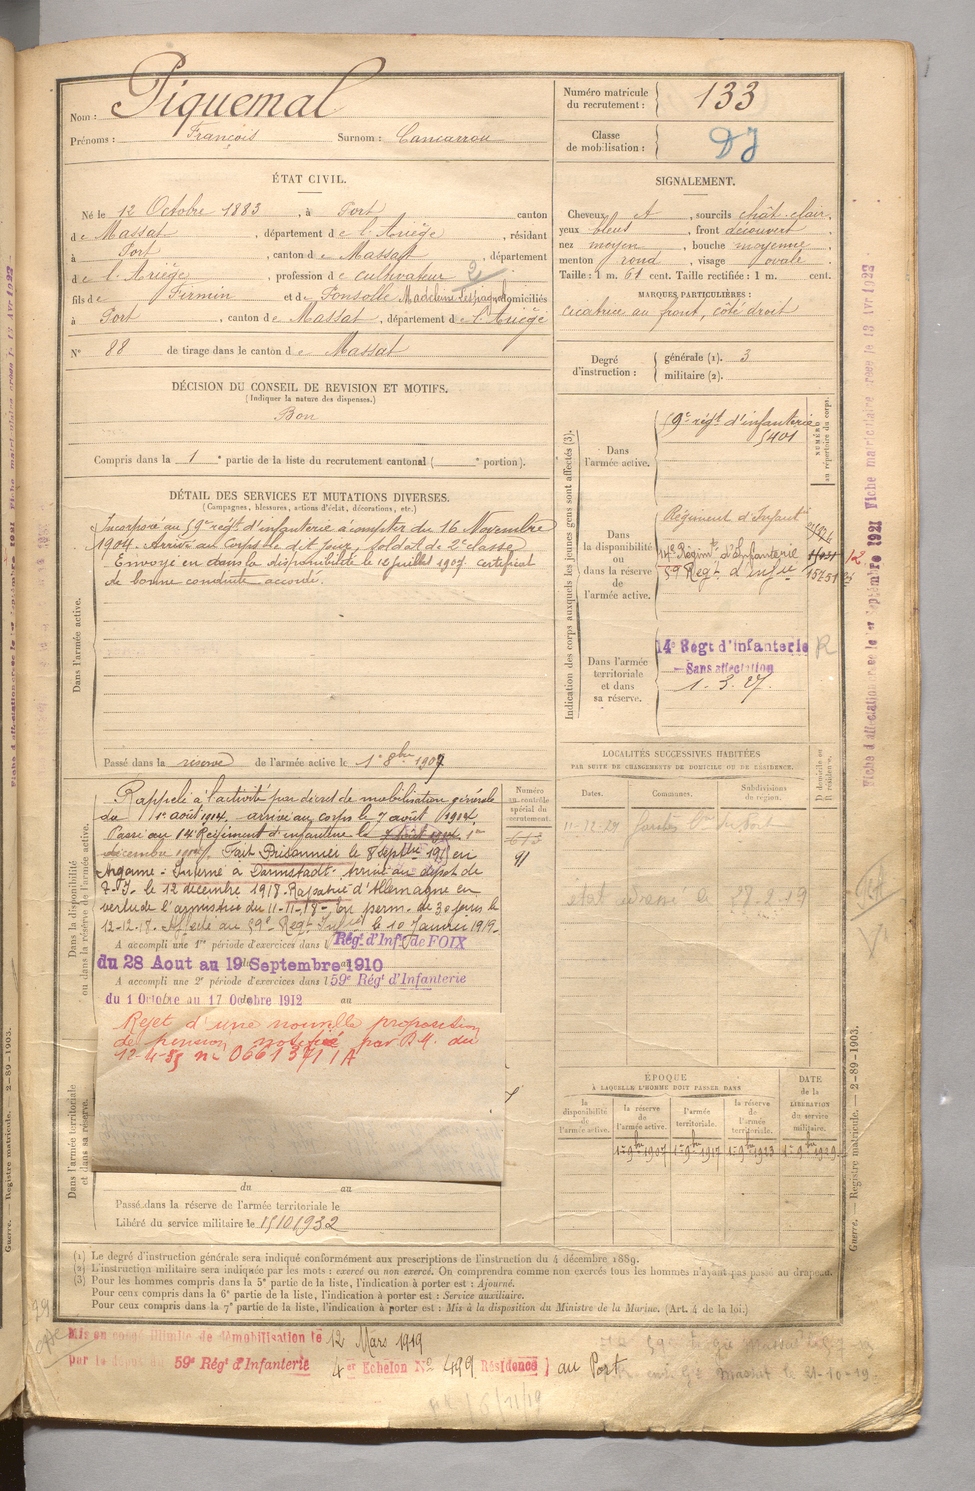 Nom : Piquemal
Prénoms : François Surnom : Cancarrou
Numéro matricule du recrutement : 133
Classe de mobilisation : DJ
ÉTAT CIVIL.
Né le 12 Octobre 1883, à Port canton
de Massat, département de l'Ariège, résidant
à Port, canton de Massat, département
de l'Ariège, profession de cultivateur 2
fils de Firmin et de Ponsolle Madeleine domiciliés
à Port, canton de Massat, département de l'Ariège
N° 88 de tirage dans le canton de Massat
SIGNALEMENT.
Cheveux et, sourcils chât. clair,
yeux bleus, front découvert,
nez moyen, bouche moyenne,
menton rond, visage ovale.
Taille : 1 m. 61 cent. Taille rectifiée : 1 m. cent.
MARQUES PARTICULIÈRES :
cicatrice au front, côté droit
Degré d'instruction : générale (1). 3
militaire (2).
DÉCISION DU CONSEIL DE REVISION ET MOTIFS.
(Indiquer la nature des dispenses.)
Bon
Compris dans la 1e partie de la liste du recrutement cantonal ( e portion).
DÉTAIL DES SERVICES ET MUTATIONS DIVERSES.
(Campagnes, blessures, actions d'éclat, décorations, etc.)
Dans l'armée active.
Incorporé au 59e régt d'infanterie à compter du 16 Novembre
1904. Arrivé au corps le dit jour, soldat de 2e classe
Envoyé en dans la disponibilité le 12 juillet 1907. Certificat
de bonne conduite accordé.
Passé dans la réserve de l'armée active le 1er 8bre 1907
Indication des corps auxquels les jeunes gens sont affectés (3).
NUMÉRO au répertoire du corps.
Dans l'armée active.
59e régt d'infanterie
5401
Dans la disponibilité ou dans la réserve de l'armée active.
Régiment d'Infant
14e Régimt d'Infanterie
59 Régt d'Infie 15751
Dans l'armée territoriale et dans sa réserve.
14e Régt d'infanterie R
Sans affectation
1. 3. 27.
Dans la disponibilité ou dans la réserve de l'armée active.
Rappelé à l'activité par décret de mobilisation générale
du 1er août 1914. arrivé au corps le 7 août 1914.
Passé au 14 Régiment d'infanterie le 1er
décembre Fait Prisonnier le 8 septbre 1915 en
Argonne - Interné à Darmstadt. Arrivé au dépôt de
le 12 décembre 1918. Rapatrié d'Allemagne en
vertu de l'armistice du 11-11-18 - En perm. de 30 jours le
12-12-18. Affecté au 59e Régt Infie le 10 Janvier 1919.
A accompli une 1re période d'exercices dans l Régt d'Infie de FOIX
du 28 Aout au 19 Septembre 1910
A accompli une 2e période d'exercices dans l 59e Régt d'Infanterie
du 1 Octobre au 17 Octobre 1912 au
Numéro au contrôle spécial du recrutement.
91
Dans l'armée territoriale et dans sa réserve.
Rejet d'une nouvelle proposition
de pension notifiée par D.M. du
du au
Passé dans la réserve de l'armée territoriale le
Libéré du service militaire le 15 10 1932
LOCALITÉS SUCCESSIVES HABITÉES
PAR SUITE DE CHANGEMENTS DE DOMICILE OU DE RÉSIDENCE.
Dates. Communes. Subdivisions de région. D domicile ou R résidence.
état adressé le 28.2.19
ÉPOQUE
À LAQUELLE L'HOMME DOIT PASSER DANS
la disponibilité de l'armée active.
la réserve de l'armée active.
l'armée territoriale.
la réserve de l'armée territoriale.
DATE de la LIBÉRATION du service militaire.
1er 9bre 1907 1er 9bre 1917 1er 9bre 1923 1er 9bre 1929
(1) Le degré d'instruction générale sera indiqué conformément aux prescriptions de l'instruction du 4 décembre 1889.
(2) L'instruction militaire sera indiquée par les mots : exercé ou non exercé. On comprendra comme non exercés tous les hommes n'ayant pas passé au drapeau.
(3) Pour les hommes compris dans la 5e partie de la liste, l'indication à porter est : Ajourné.
Pour ceux compris dans la 6e partie de la liste, l'indication à porter est : Service auxiliaire.
Pour ceux compris dans la 7e partie de la liste, l'indication à porter est : Mis à la disposition du Ministre de la Marine. (Art. 4 de la loi.)
Mis en congé illimité de démobilisation le 12 Mars 1919
par le dépôt du 59e Régt d'Infanterie 4e Echelon N° 499 Résidence ) au Port
Guerre. — Registre matricule. — 2-89-1903.
Guerre. — Registre matricule. — 2-89-1903.
Fiche d'affectation créée le 1er Septembre 1921 Fiche matriculaire créée le 13 Avr 1923